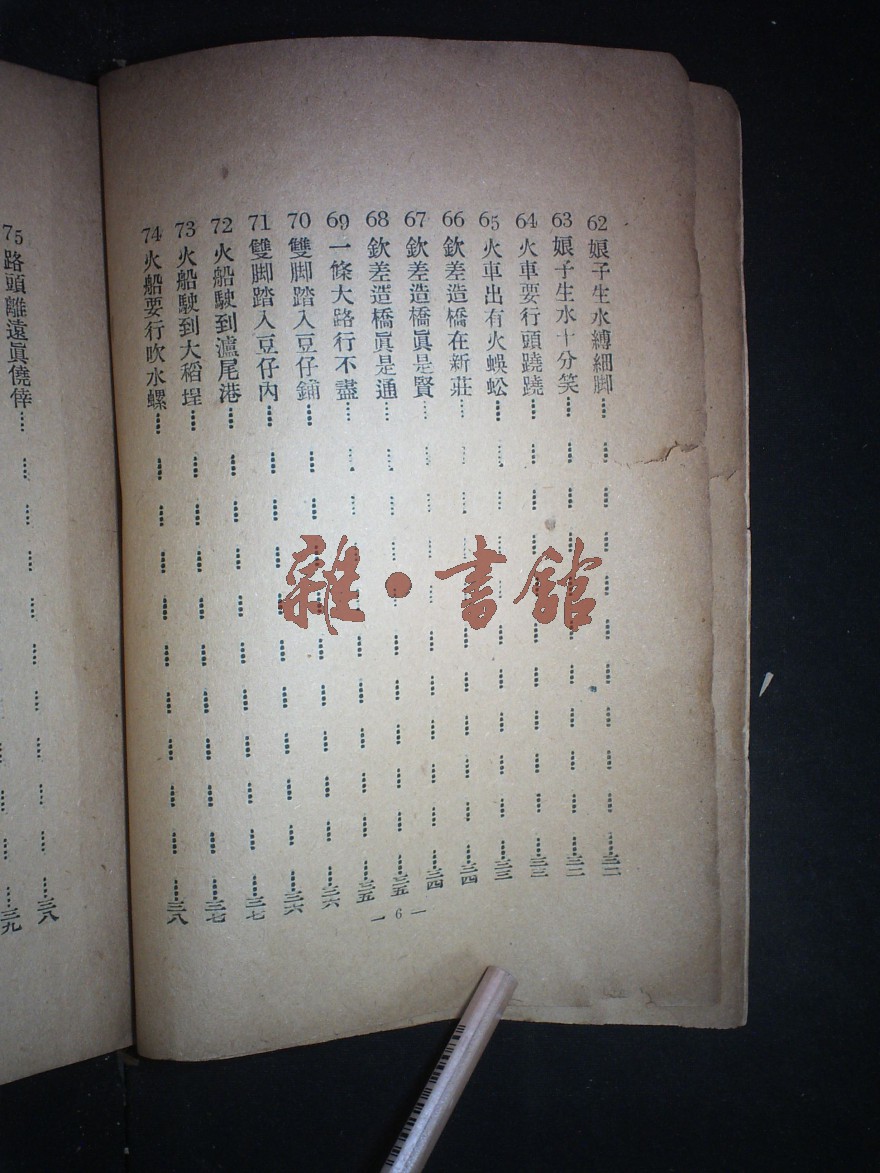 62 娘子生水縛細脚……三二
63 娘子生水十分笑……三二
64 火車要行頭蹺蹺……三三
65 火車出有火蜈蚣……三三
66 欽差造橋在新莊……三四
67 欽差造橋眞是賢……三四
68 欽差造橋眞是通……三五
69 一條大路行不盡……三五
70 雙脚踏入豆仔鋪……三六
71 雙脚踏入豆仔內……三六
72 火船駛到滬尾港……三七
73 火船駛到大稻埕……三七
74 火船要行吹水螺……三八
— 6 —
75 路頭離遠眞僥倖……三八
三九
雜·書館